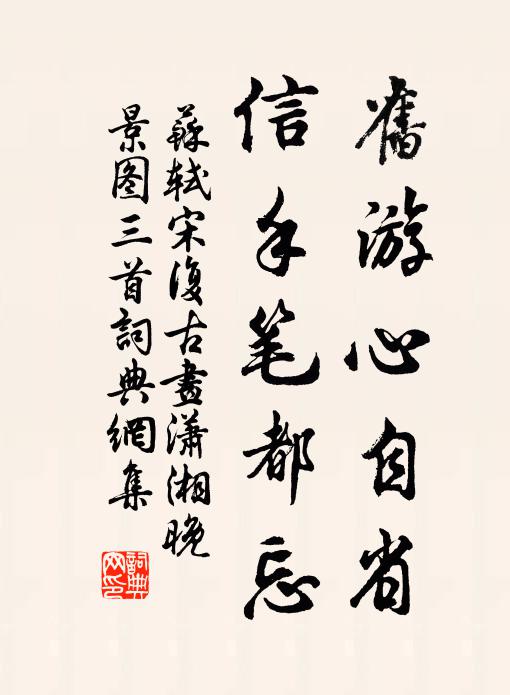 舊游心自省
信手笔都忘
蘇軾宋復古畫瀟湘晚
景图三首詞典網集
詞典网印